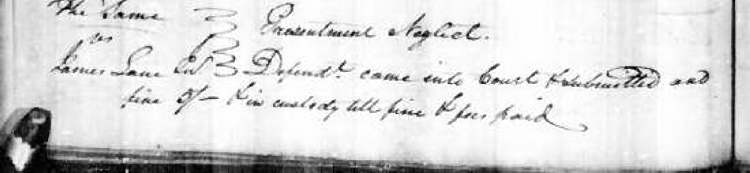 The Same
vs
Presentment Neglect.
James Lane Senr Defendt. came into Court & submitted and
fine 5/- & in custody till fine & fees paid